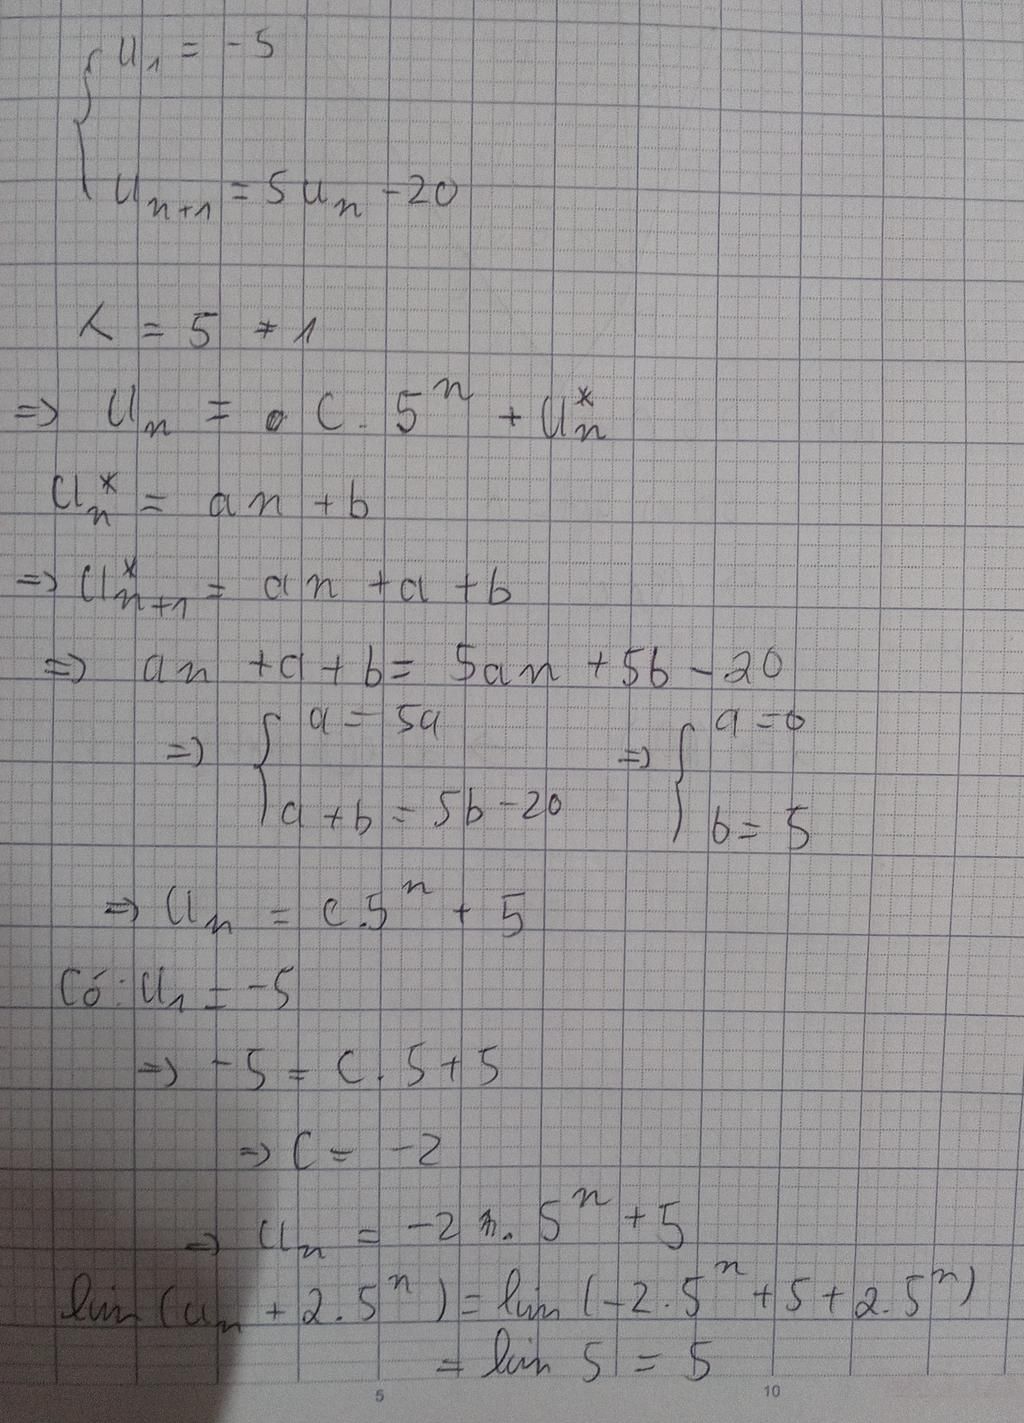 { u₁ = -5
u_{n+1} = 5u_n - 20
λ = 5 ≠ 1
=> u_n = C. 5^n + u_n^*
u_n^* = an + b
=> u_{n+1}^* = an + a + b
=> an + a + b = 5an + 5b - 20
=> { a = 5a => { a = 0
a + b = 5b - 20 b = 5
=> u_n = c.5^n + 5
Có: u₁ = -5
=> -5 = C. 5 + 5
=> C = -2
=> u_n = -2 . 5^n + 5
lim (u_n + 2.5^n) = lim (-2.5^n + 5 + 2.5^n)
= lim 5 = 5
5 10